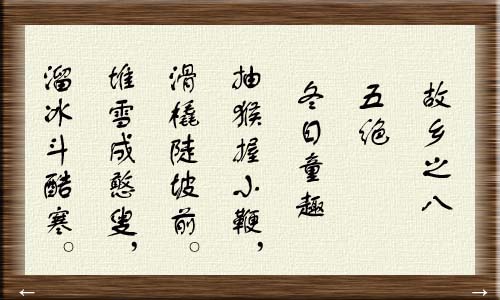 故乡之八
五绝
冬日童趣
抽猴握小鞭，
滑橇陡坡前。
堆雪成憨叟，
溜冰斗酷寒。
←
→